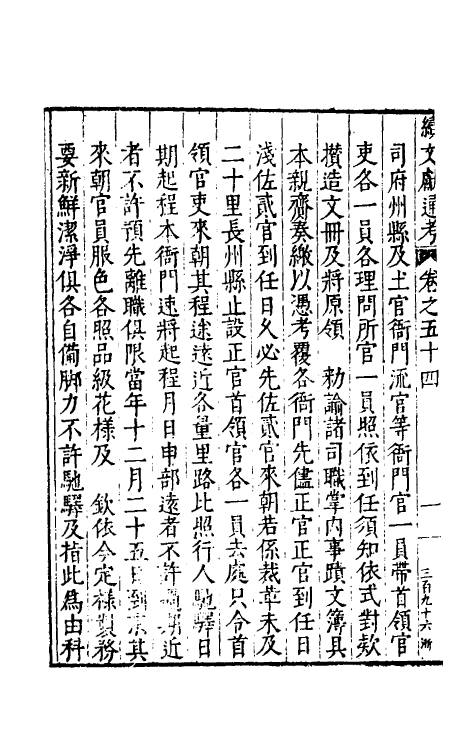 續文獻通考 卷之五十四 一 三百九十六 浙
司府州縣及土官衙門流官等衙門官一員帶首領官
吏各一員各理問所官一員照依到任須知依式對款
攅造文冊及將原領 勑諭諸司職掌內事蹟文簿具
本親齎奏繳以憑考覆各衙門先儘正官正官到任日
淺佐貳官到任日久必先佐貳官來朝若係裁革未及
二十里長州縣止設正官首領官各一員去處只令首
領官吏來朝其程途遠近各量里路比照行人馳驛日
期起程本衙門速將起程月日申部遠者不許過期近
者不許預先離職俱限當年十二月二十五日到京其
來朝官員服色各照品級花樣及 欽依今定樣製務
要新鮮潔淨俱各自僃脚力不許馳驛及指此為由科